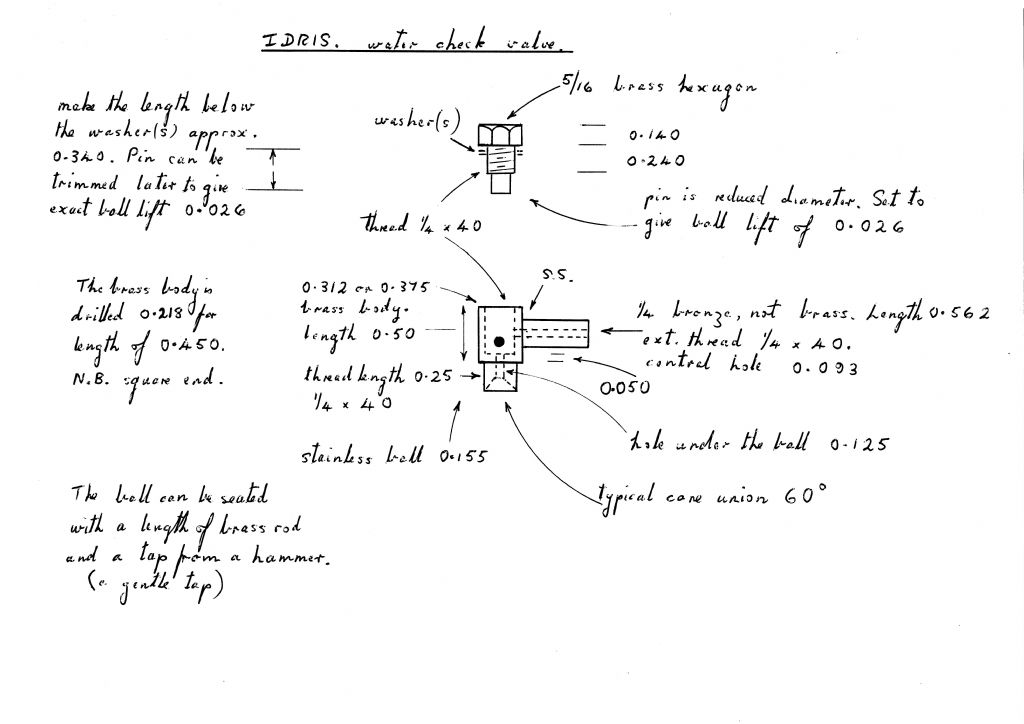 IDRIS. water check valve.
5/16 brass hexagon
make the length below
the washer(s) approx.
0.340. Pin can be
trimmed later to give
exact ball lift 0.026
washer(s)
0.140
0.240
pin is reduced diameter. Set to
give ball lift of 0.026
thread 1/4 x 40
The brass body is
drilled 0.218 for
length of 0.450.
N.B. square end.
0.312 or 0.375
brass body.
length 0.50
thread length 0.25
1/4 x 40
stainless ball 0.155
S.S.
1/4 bronze, not brass. Length 0.562
ext. thread 1/4 x 40.
central hole 0.093
0.050
hole under the ball 0.125
typical cone union 60°
The ball can be seated
with a length of brass rod
and a tap from a hammer.
(a gentle tap)